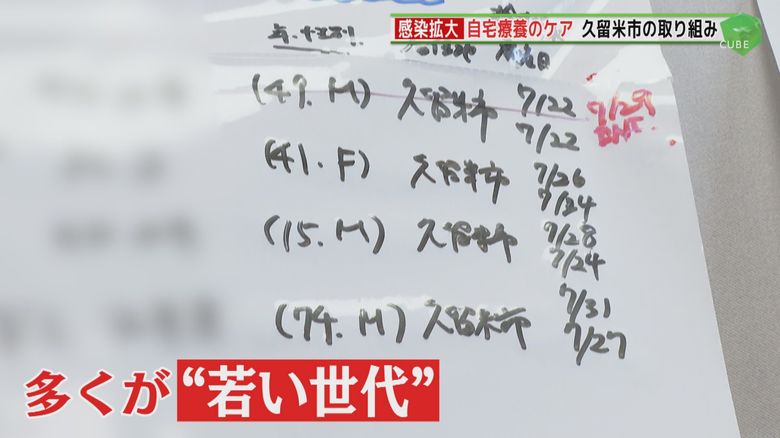 感染拡大 自宅療養のケア 久留米市の取り組み
CUBE
年・性別
(49. M) 久留米市 7/22 7/29
7/22
(41. F) 久留米市 7/26
7/24
(15. M) 久留米市 7/28
7/24
(74. M) 久留米市 7/31
7/27
多くが “若い世代”